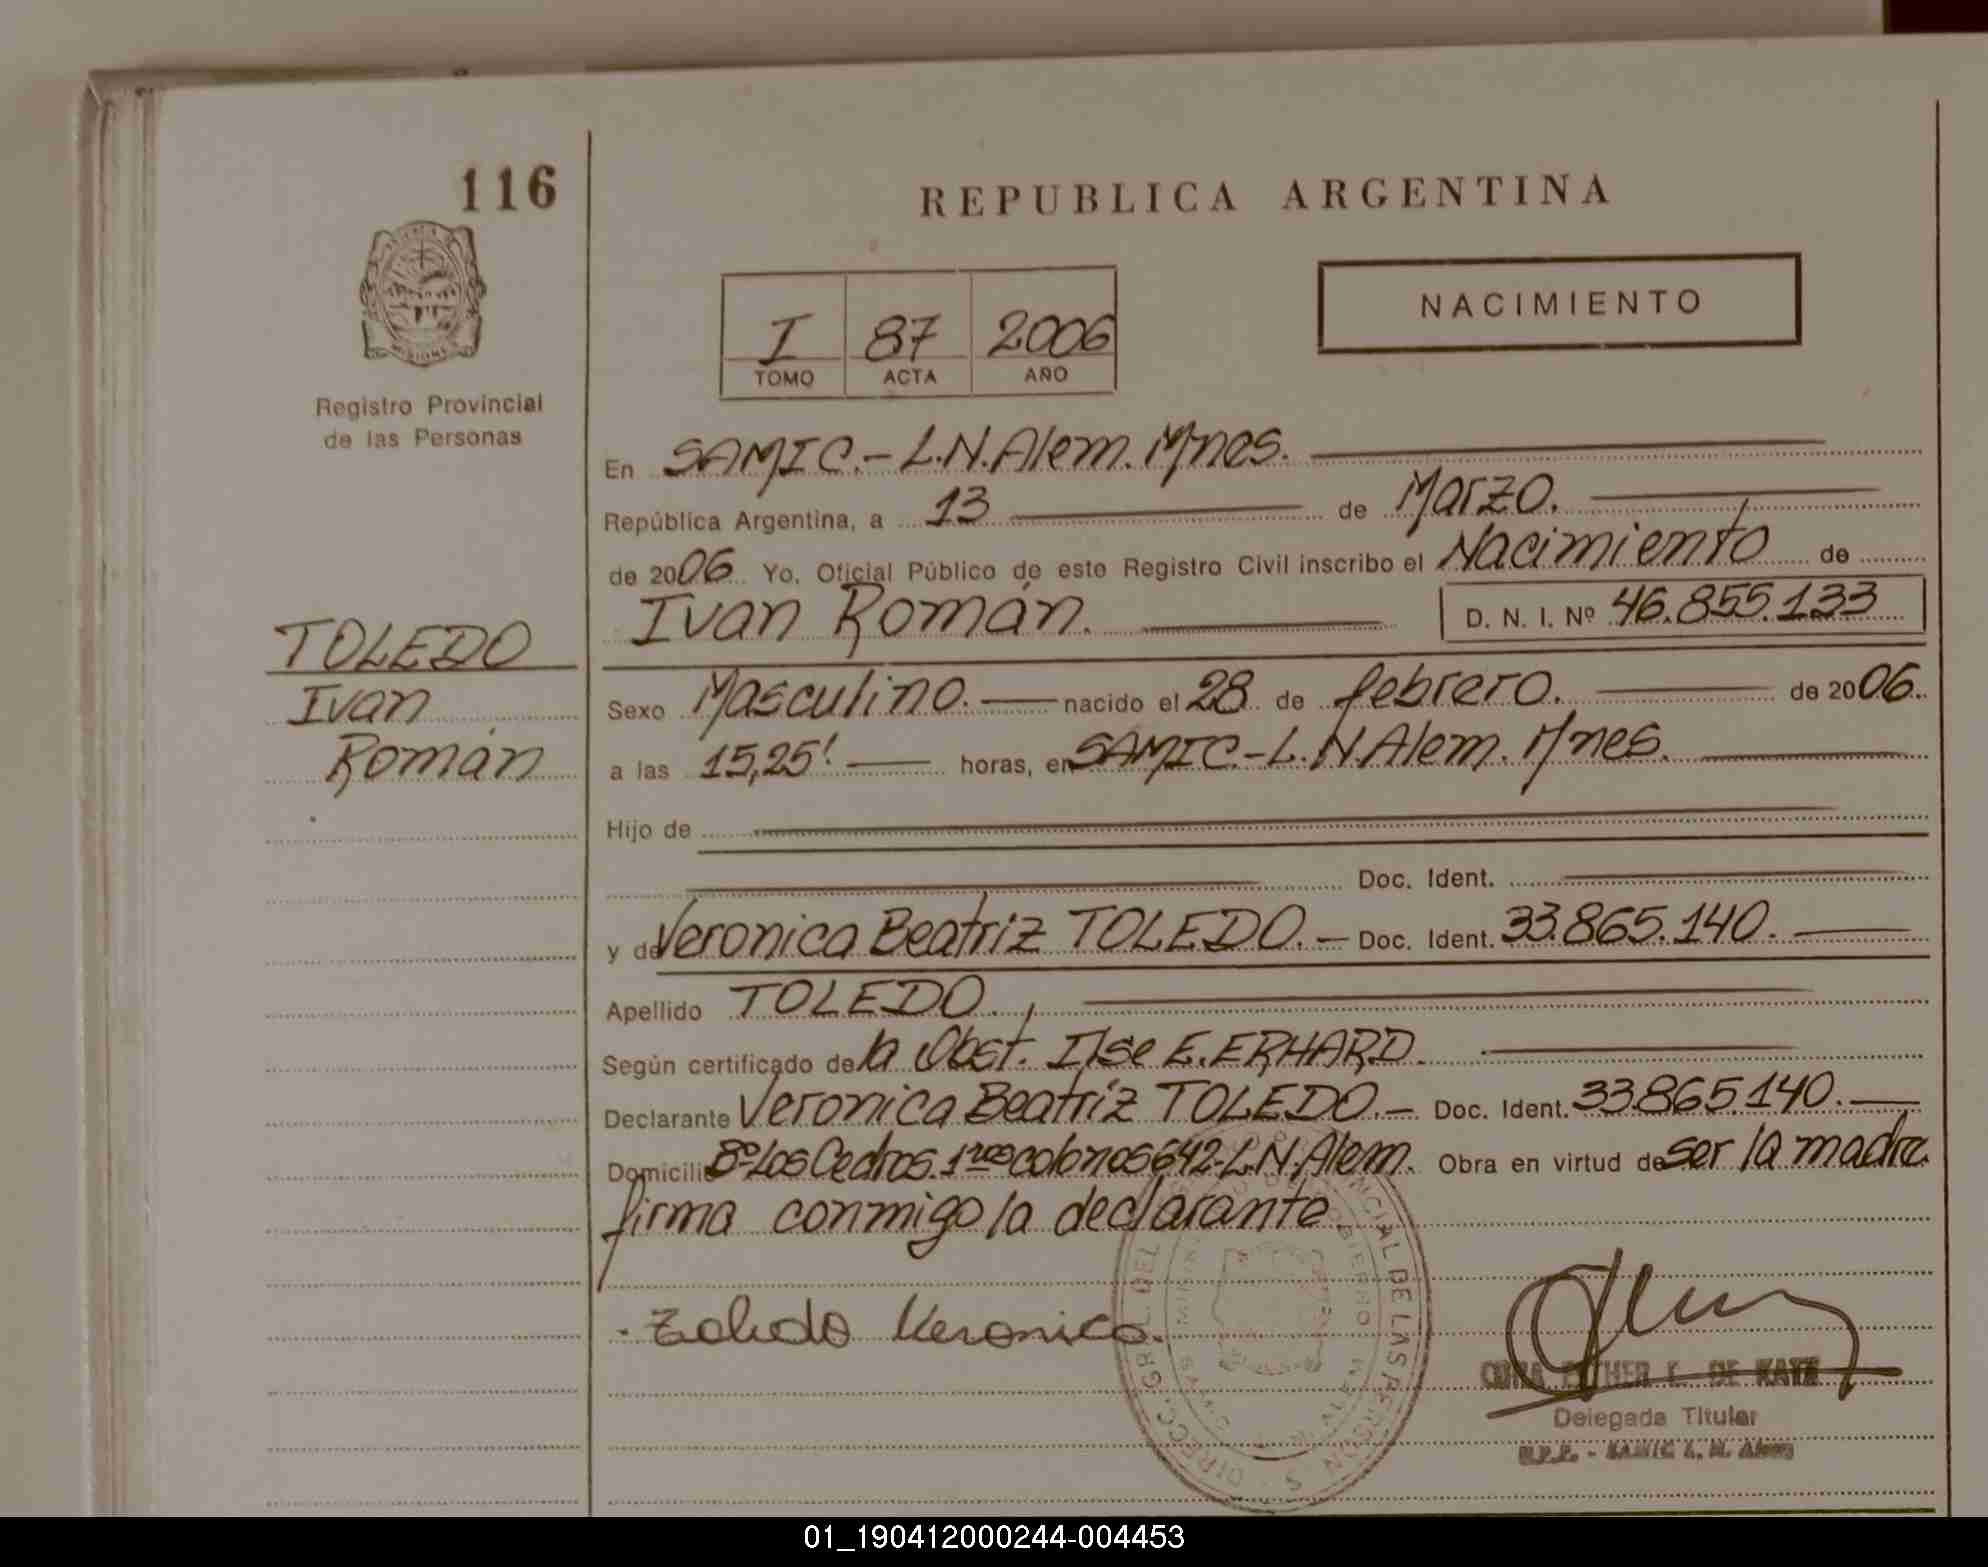 116
REPUBLICA ARGENTINA
NACIMIENTO
I 87 2006
TOMO ACTA AÑO
Registro Provincial
de las Personas
En SAMIC.- L.N.Alem. Mnes.
República Argentina, a 13 de Marzo.
de 2006 Yo, Oficial Público de este Registro Civil inscribo el Nacimiento de
Ivan Román. D. N. I. Nº 46.855.133
TOLEDO
Ivan
Román
Sexo Masculino. nacido el 28 de febrero. de 2006.
a las 15,25' horas, en SAMIC.-L.N.Alem. Mnes.
Hijo de
Doc. Ident.
y de Veronica Beatriz TOLEDO. Doc. Ident. 33.865.140.
Apellido TOLEDO.
Según certificado de la Obst. Ilse E. ERHARD.
Declarante Veronica Beatriz TOLEDO. Doc. Ident. 33.865.140.
Domicilio Bº Los Cedros. 1ros colonos 642-L.N.Alem. Obra en virtud de ser la madre
firma conmigo la declarante.
Toledo Veronica.
DE KATZ
Delegada Titular
R.P.P. - SAMIC L. N. Alem
DIRECC. GRAL. DEL PROVINCIAL DE LAS PERSONAS
01_190412000244-004453